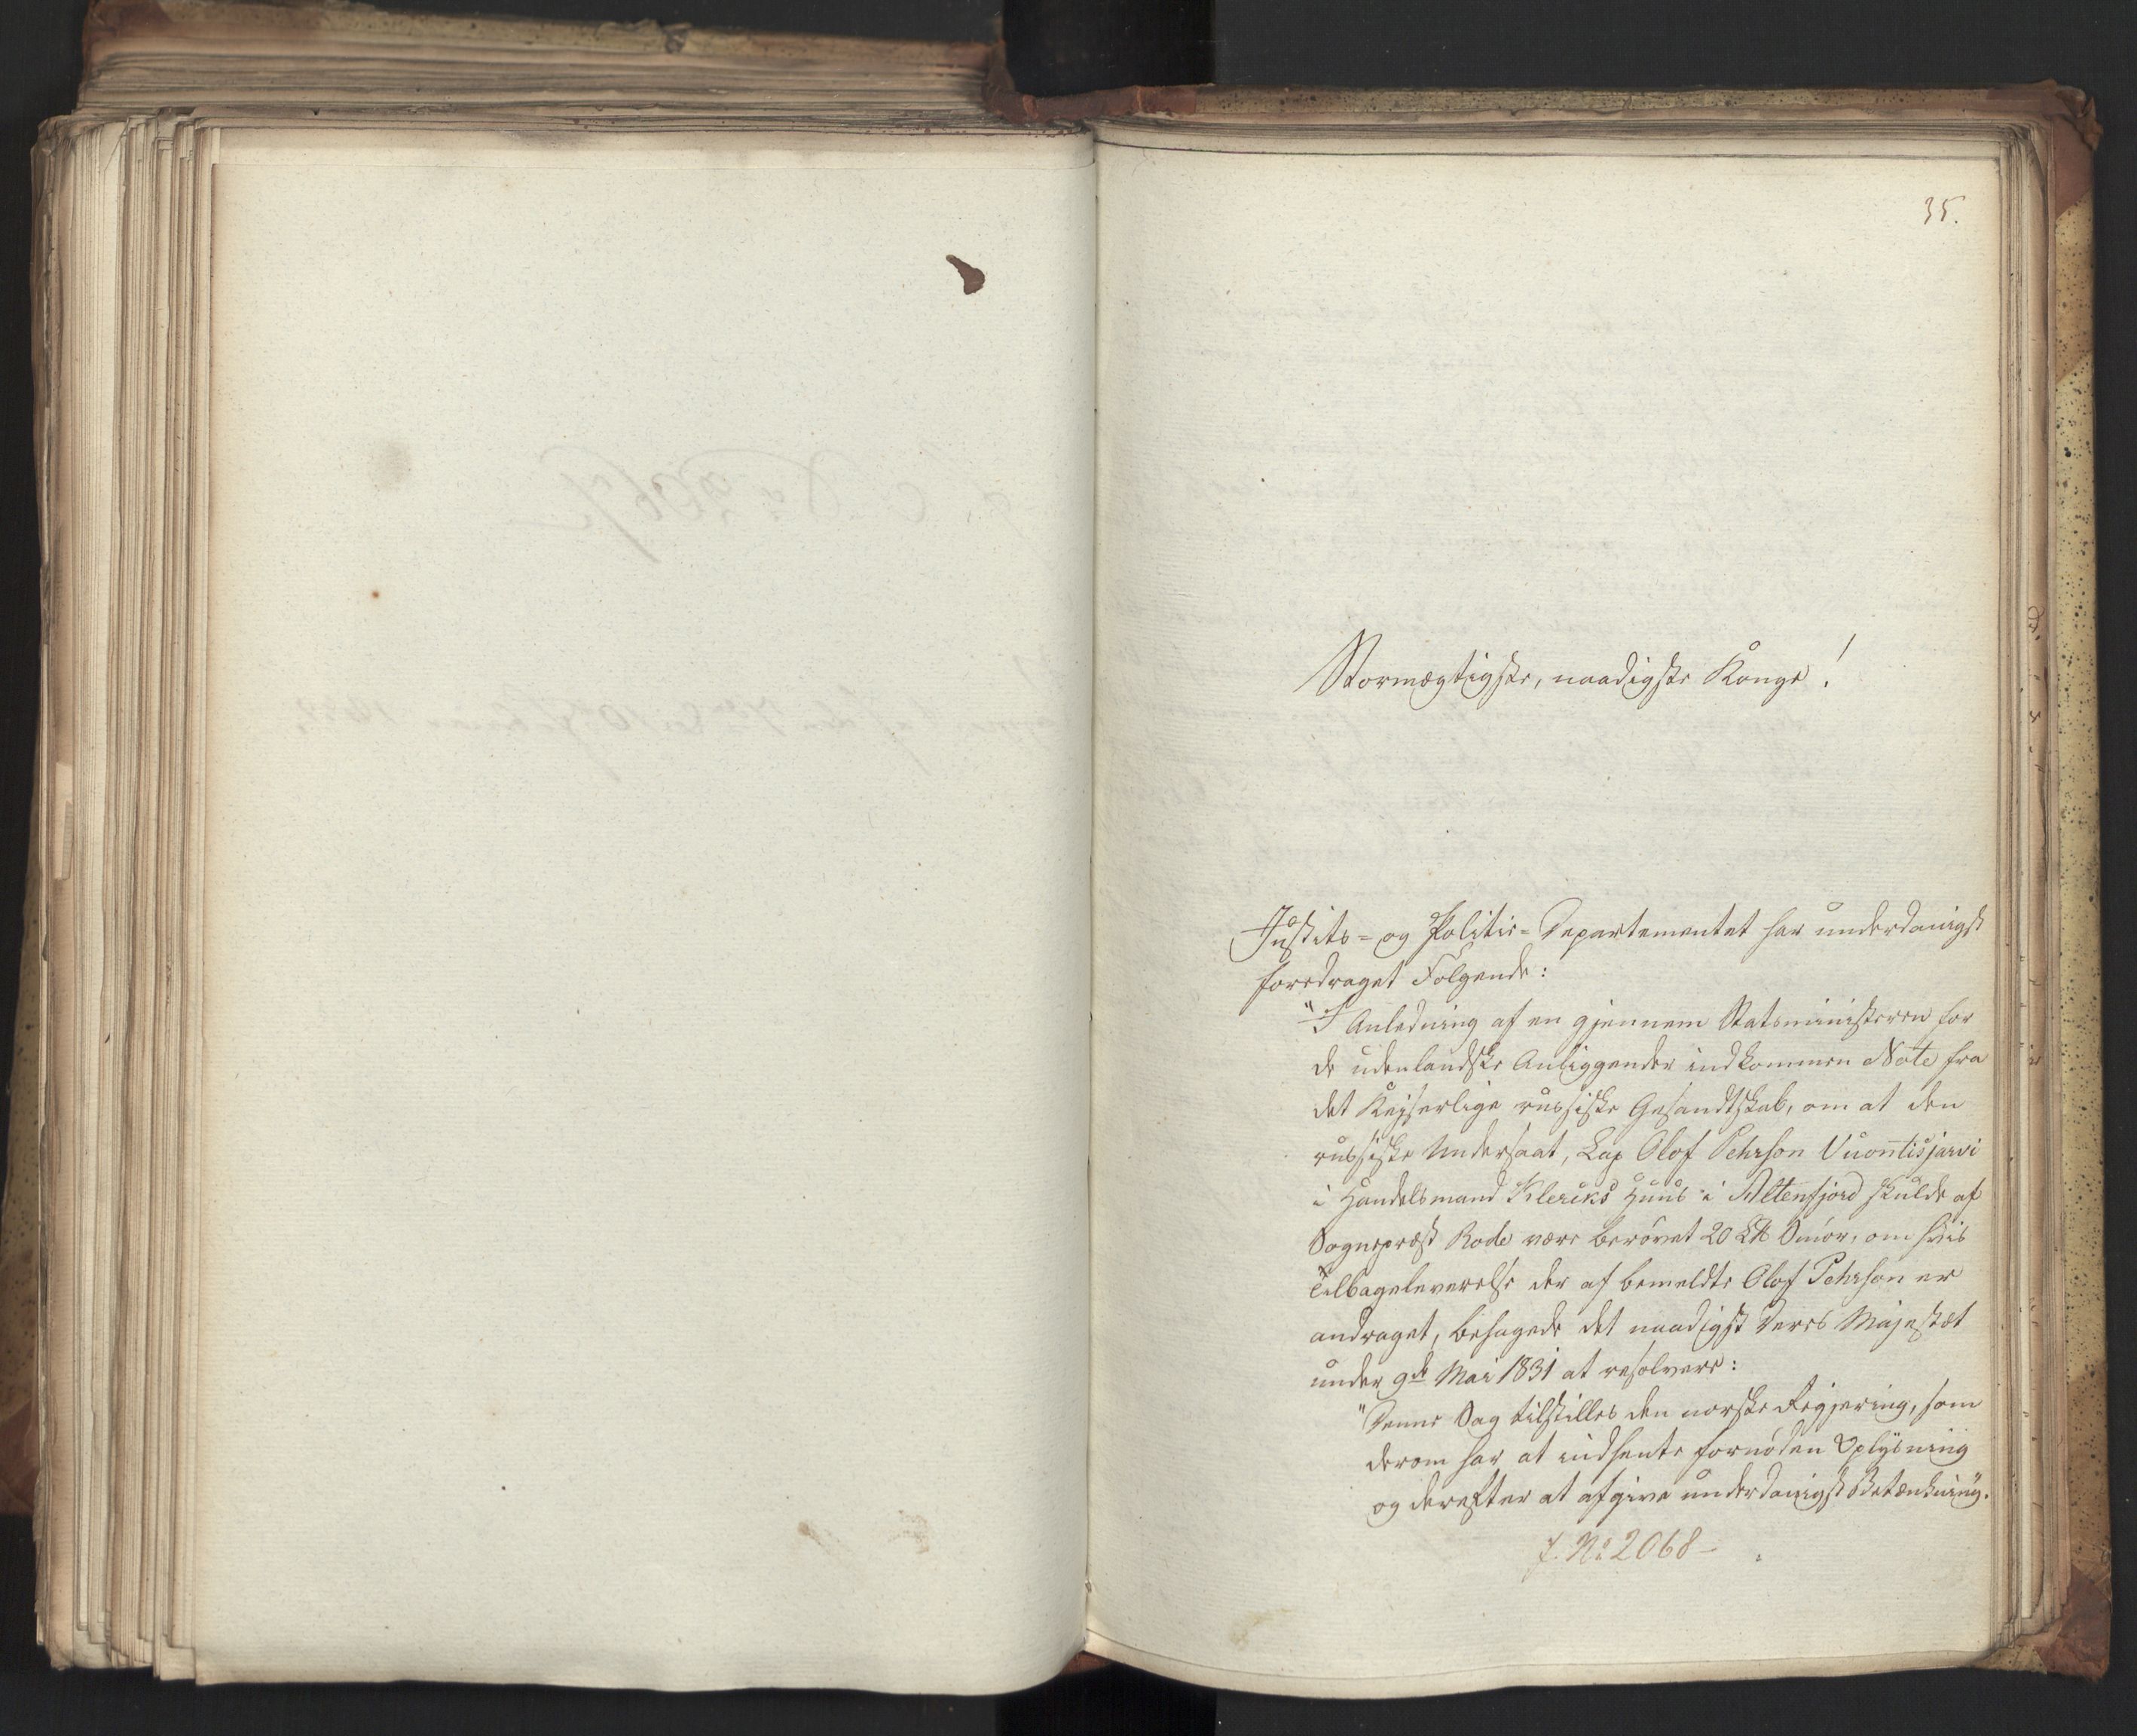 35.
Stormægtigste, naadigste Konge!
Justits- og Politie-Departementet har underdanigst
foredraget Følgende:
"I Anledning af en gjennem Statsministeren for
de udenlandske Anliggender indkommen Note fra
det Keiserlige russiske Gesandtskab, om at den
russiske Undersaat, Lap Olof Pehrson Vuontisjarvi
i Handelsmand Klercks Huus i Altenfjord skulde af
Sogneprest Rode være berøvet 20 L℔ Smör, om hvis
Tilbageleverelse der af bemeldte Olof Pehrson er
andraget, behagede det naadigst Deres Majestæt
under 9de Mai 1831 at resolvere:
"Denne Sag tilstilles den norske Regjering, som
derom har at indhente fornöden Oplysning
og derefter at afgive underdanigst Betænkning."
J. No 2068-